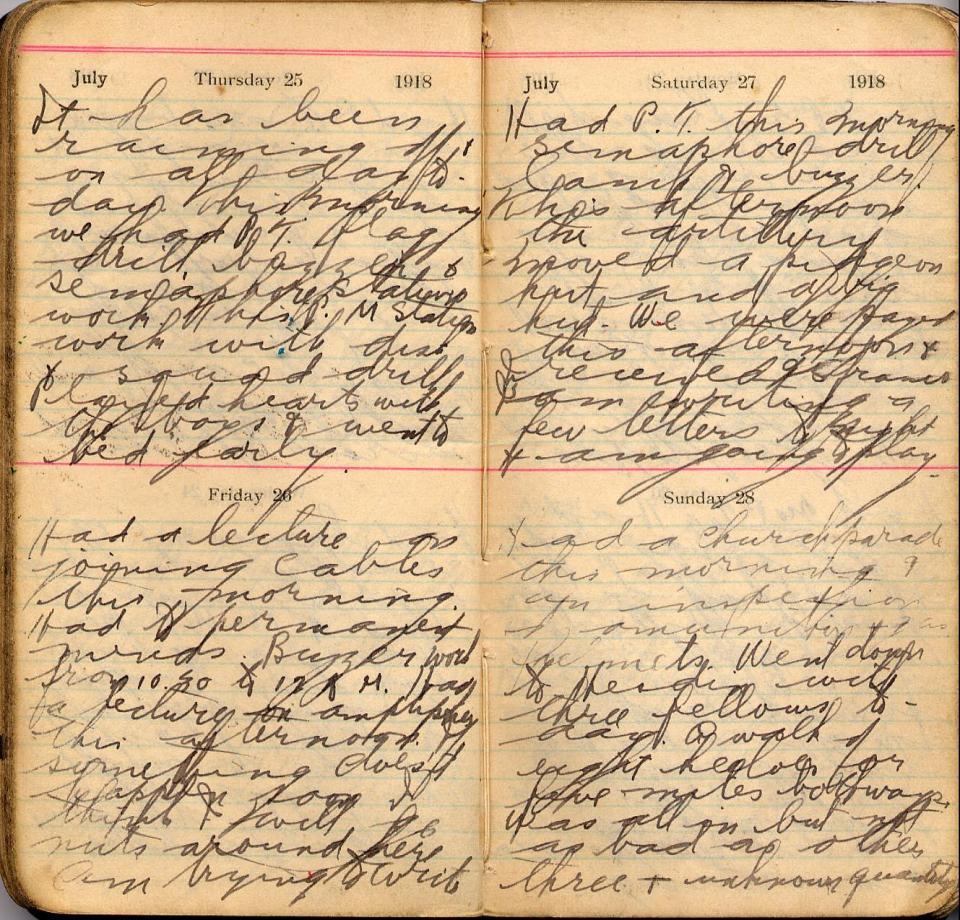 July Thursday 25 1918
It has been
raining off &
on all day to-
day. This morning
we had P.T. flag
drill buzzer &
semaphore station
work. This P. M Station
work with disc
& squad drill
Played hearts with
the boys & went to
bed early.
Friday 26
Had a lecture on
joining cables
this morning.
Had permanent
Buzzer work
from 10.30 to 12 A M. Had
a lecture on
this afternoon. If
something doesn't
happen soon I
think I will go
nuts around here
Am trying to write
July Saturday 27 1918
Had P. T. this morning
semaphore drill
lamp & buzzer.
This afternoon
the artillery
moved a pidgeon
hut and a big
hut. We were payed
this afternoon &
I received 95 francs
Am writing a
few letters to night
& am going to play
Sunday 28
Had a church parade
this morning &
an inspection
of amunition & gas
helmets. Went down
to with
three fellows to-
day. A walk of
eight
five miles both ways.
Was all in but not
as bad as other
three + unknown quantity